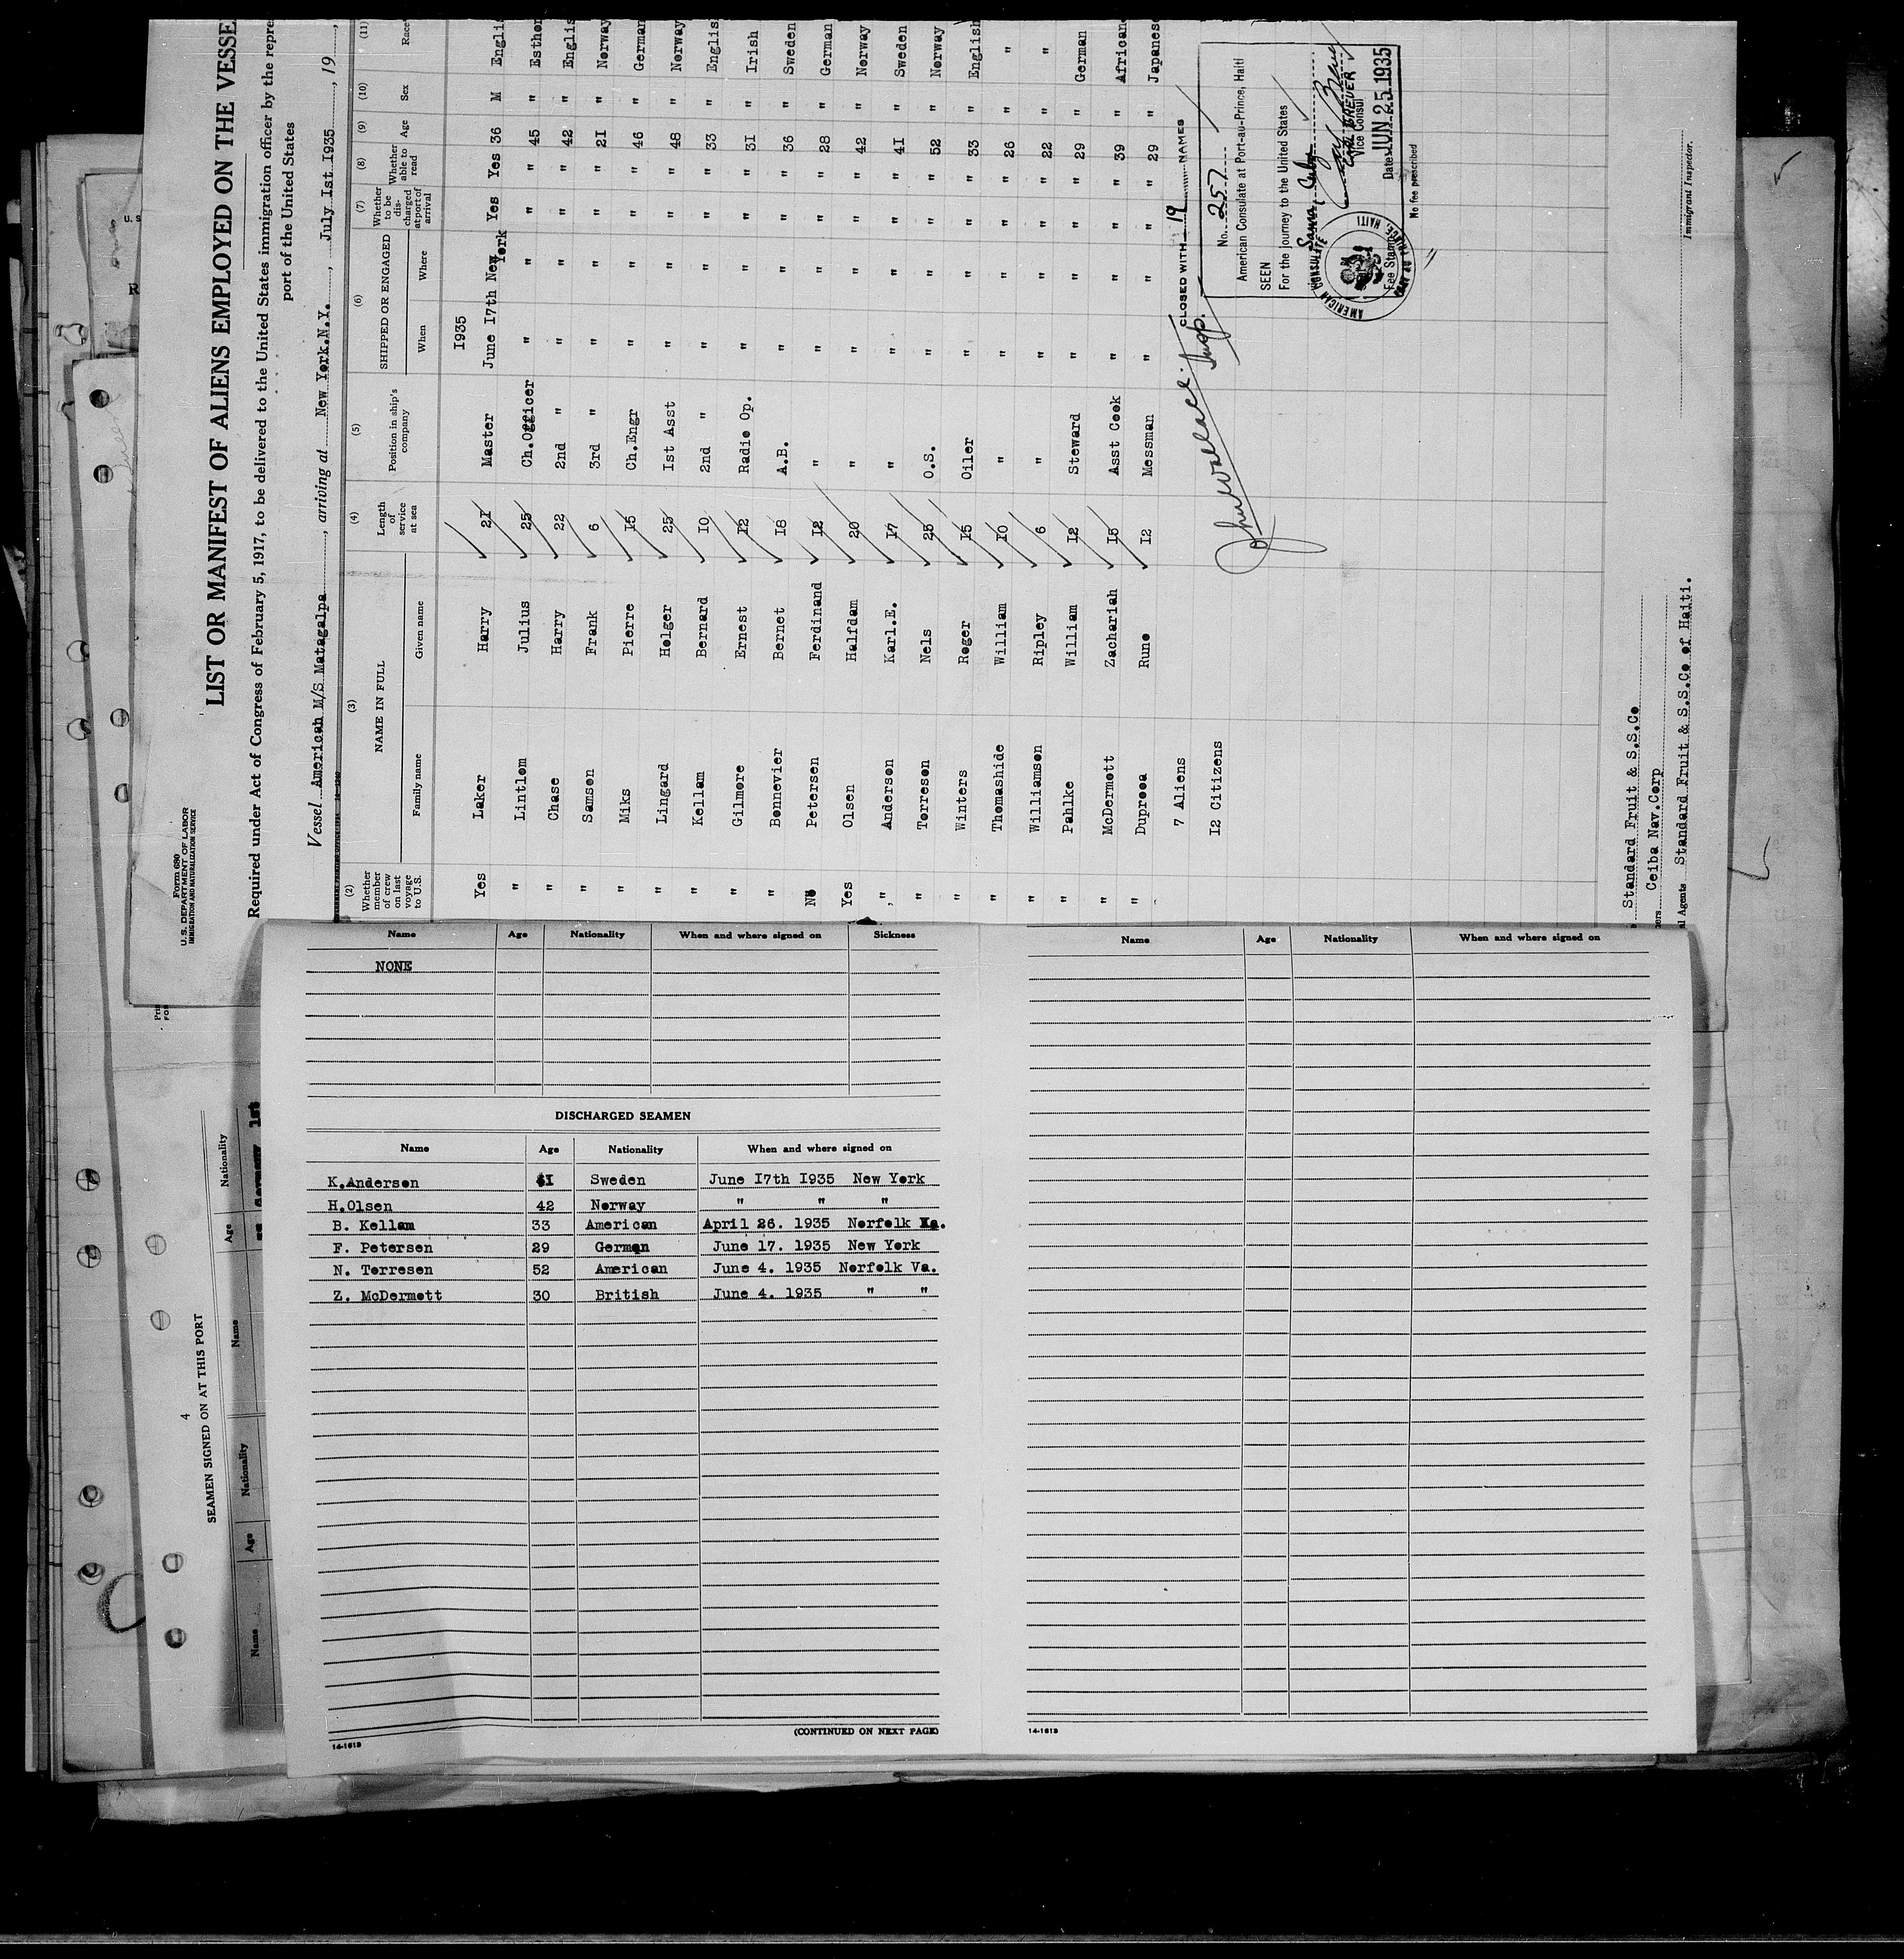 Form 680
U. S. DEPARTMENT OF LABOR
IMMIGRATION AND NATURALIZATION SERVICE
LIST OR MANIFEST OF ALIENS EMPLOYED ON THE VESSE
Required under Act of Congress of February 5, 1917, to be delivered to the United States immigration officer by the repre
port of the United States
Vessel American M/S Matagalpa, arriving at New York.N.Y., July Ist I935, 19
(2) (3) (4) (5) (6) (7) (8) (9) (10) (11)
Whether member of crew on last voyage to U.S. NAME IN FULL Length of service at sea Position in ship's company SHIPPED OR ENGAGED Whether to be discharged at port of arrival Whether able to read Age Sex Race
Family name Given name When Where
I935
Yes Laker Harry 2I Master June I7th New York Yes Yes 36 M Englis
" Lintlom Julius 25 Ch.Ogficer " " " " 45 " Esthon
" Chase Harry 22 2nd " " " " " 42 " Englis
" Samsen Frank 6 3rd " " " " " 2I " Norway
" Miks Pierre I5 Ch.Engr " " " " 46 " German
" Lingard Holger 25 Ist Asst " " " " 48 " Norway
" Kellam Bernard IO 2nd " " " " " 33 " Englis
" Gilmore Ernest I2 Radio Op. " " " " 3I " Irish
" Bonnevier Bernet I8 A.B. " " " " 36 " Sweden
No Petersen Ferdinand I2 " " " " " 28 " German
Yes Olsen Halfdam 20 " " " " " 42 " Norway
" Anderson Karl.E. I7 " " " " " 4I " Sweden
" Torresen Nels 25 O.S. " " " " 52 " Norway
" Winters Roger I5 Oiler " " " " 33 " English
" Thomashide William IO " " " " " 26 " "
" Williamson Ripley 6 " " " " " 22 " "
" Pahlke William I2 Steward " " " " 29 " German
" McDermott Zachariah I5 Asst Cook " " " " 39 " African
" Duprooa Rune I2 Messman " " " " 29 " Japanes
7 Aliens
I2 Citizens
CLOSED WITH 19 NAMES
No. 257
American Consulate at Port-au-Prince, Haiti
SEEN
For the journey to the United States
Vice Consul
Date JUN 25 1935
Fee Stamp
No fee prescribed
AMERICAN CONSULATE
PORT AU PRINCE, HAITI
Standard Fruit & S.S.Co
Ceiba Nav.Corp
l Agents Standard Fruit & S.S.Co of Haiti.
Immigrant Inspector.
4
SEAMEN SIGNED ON AT THIS PORT
Name Age Nationality Name Age Nationality
Name Age Nationality When and where signed on Sickness
NONE
DISCHARGED SEAMEN
Name Age Nationality When and where signed on
K.Anderson 4I Sweden June I7th I935 New York
H.Olsen 42 Norway " " "
B. Kellam 33 American April 26. 1935 Norfolk Va.
F. Petersen 29 German June 17. 1935 New York
N. Torresen 52 American June 4. 1935 Norfolk Va.
Z. McDermott 30 British June 4. 1935 " "
(CONTINUED ON NEXT PAGE)
14-1613
Name Age Nationality When and where signed on
14-1613